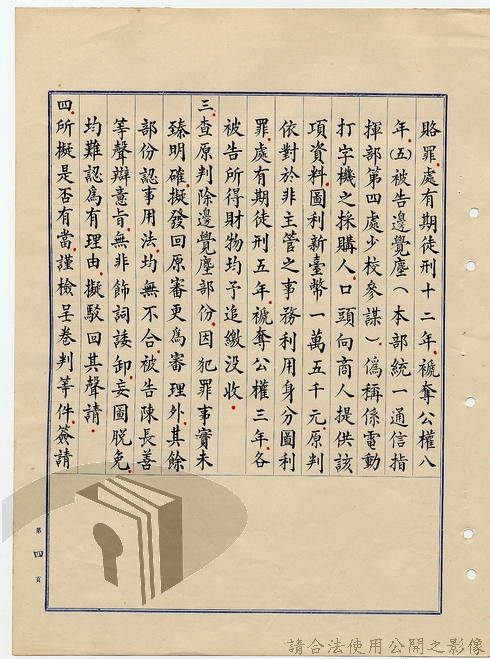 賂罪處有期徒刑十二年褫奪公權八
年。(五)被告邊覺塵(本部統一通信指
揮部第四處少校參謀)偽稱係電動
打字機之採購人。口頭向商人提供該
項資料。圖利新臺幣一萬五千元。原判
依對於非主管之事務利用身分圖利
罪。處有期徒刑五年。褫奪公權三年。各
被告所得財物均予追繳沒收。
三查原判除邊覺塵部份。因犯罪事實未
臻明確。擬發回原審更為審理外。其餘
部份認事用法。均無不合。被告陳長善
等聲辯意旨。無非飾詞諉卸。妄圖脫免。
均難認為有理由。擬駁回其聲請。
四所擬是否有當。謹檢呈卷判等件。簽請
第四頁
請合法使用公開之影像